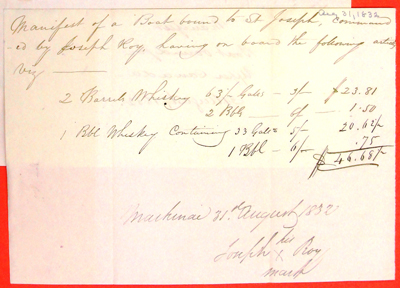 Aug 31, 1832
Manifest of a Boat bound to St Joseph, Command
ed by Joseph Roy, having on board the following articles
viz
2 Barrels Whiskey 63½ Galls - 3/- $23.81
2 Bbls - 6/- 1.50
1 Bbl Whiskey Containing 33 Galls 5/- 20.62½
1 Bbl - 6/- .75
$46.68½
Mackinac 31st August 1832
his
Joseph x Roy
mark